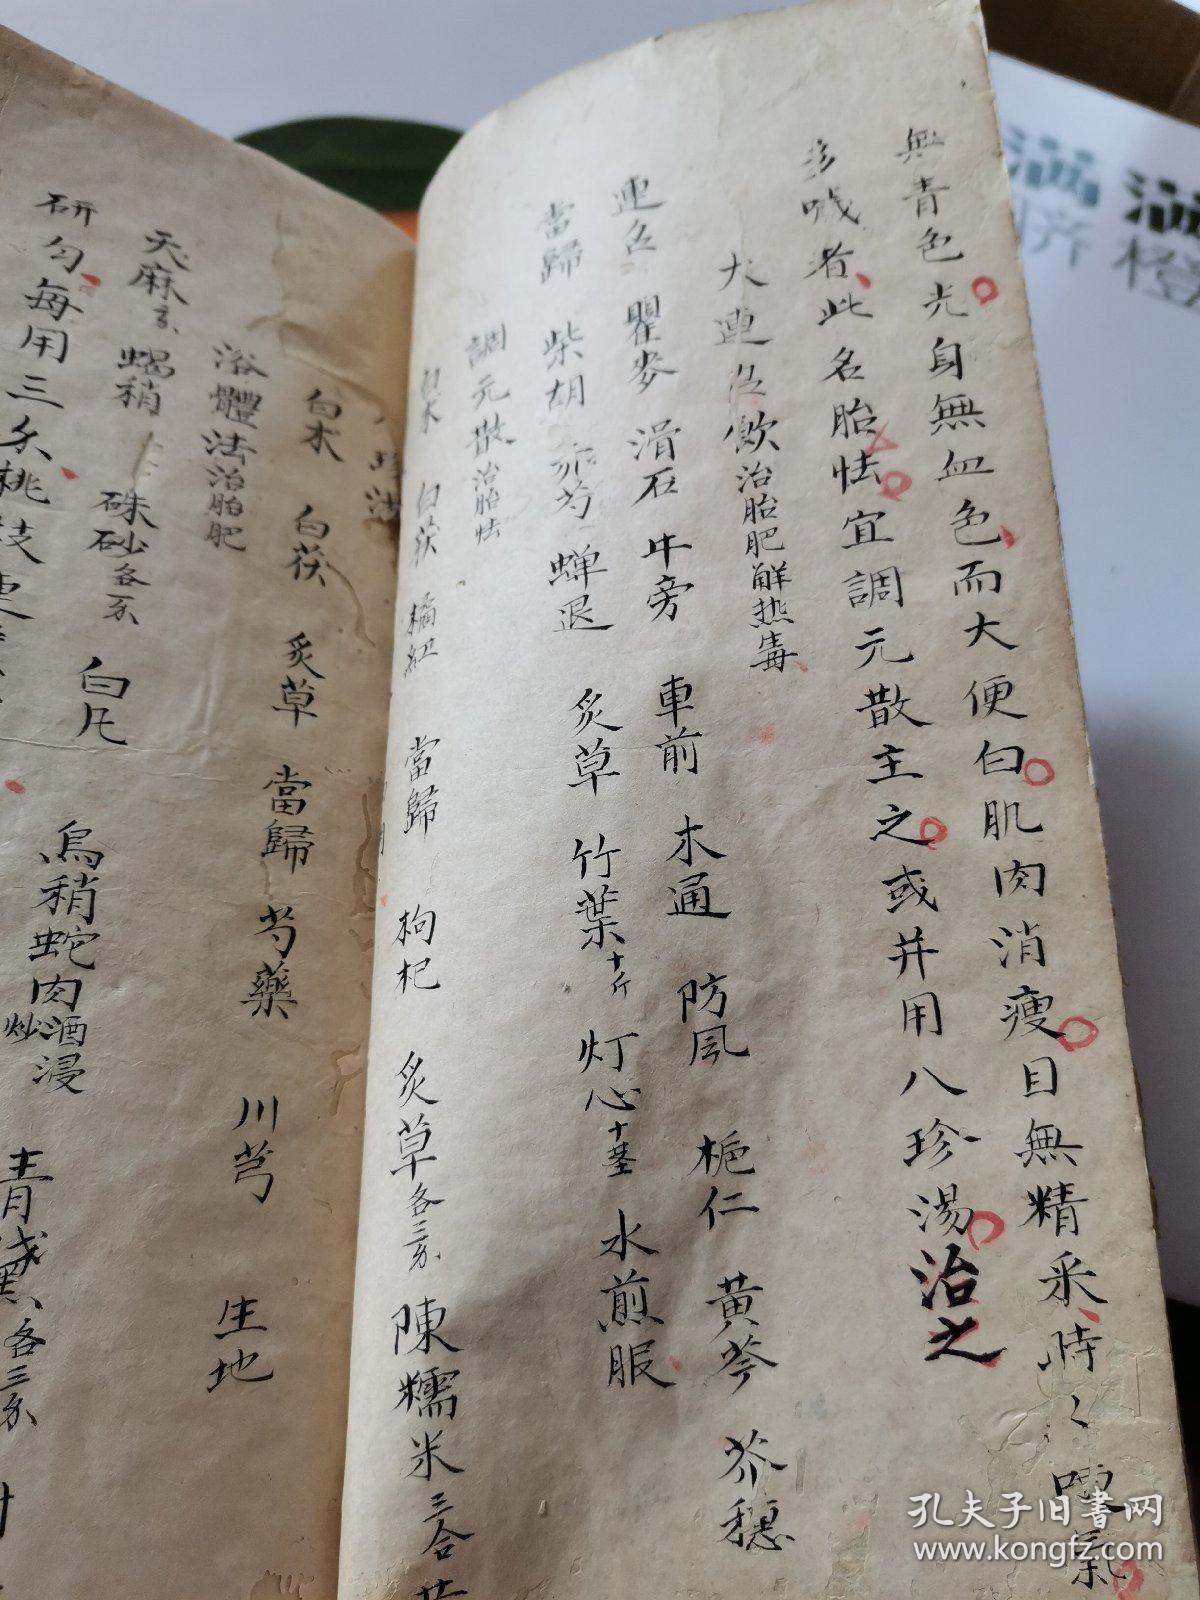 無青色光自無血色而大便白肌肉消瘦目無精采時〻哽氣
多哦者此名胎怯宜調元散主之或并用八珍湯治之
大連翹飲治胎肥解热毒
連翹 瞿麥 滑石 牛旁 車前 木通 防風 梔仁 黄芩 芥穗
當歸 柴胡 赤芍 蟬退 炙草 竹葉十斤 灯心十莖 水煎服
調元散治胎怯
白术 白茯 橘紅 當歸 枸杞 炙草各三分 陳糯米三合
八珍湯
白术 白茯 炙草 當歸 芍藥 川芎 生地
浴體法治胎肥
天麻 蝎稍 硃砂 白凡 烏稍蛇肉酒浸炒 青黛各三分
研匀每用三分桃枝
孔夫子旧书网
www.kongfz.com
涵 涵
橙